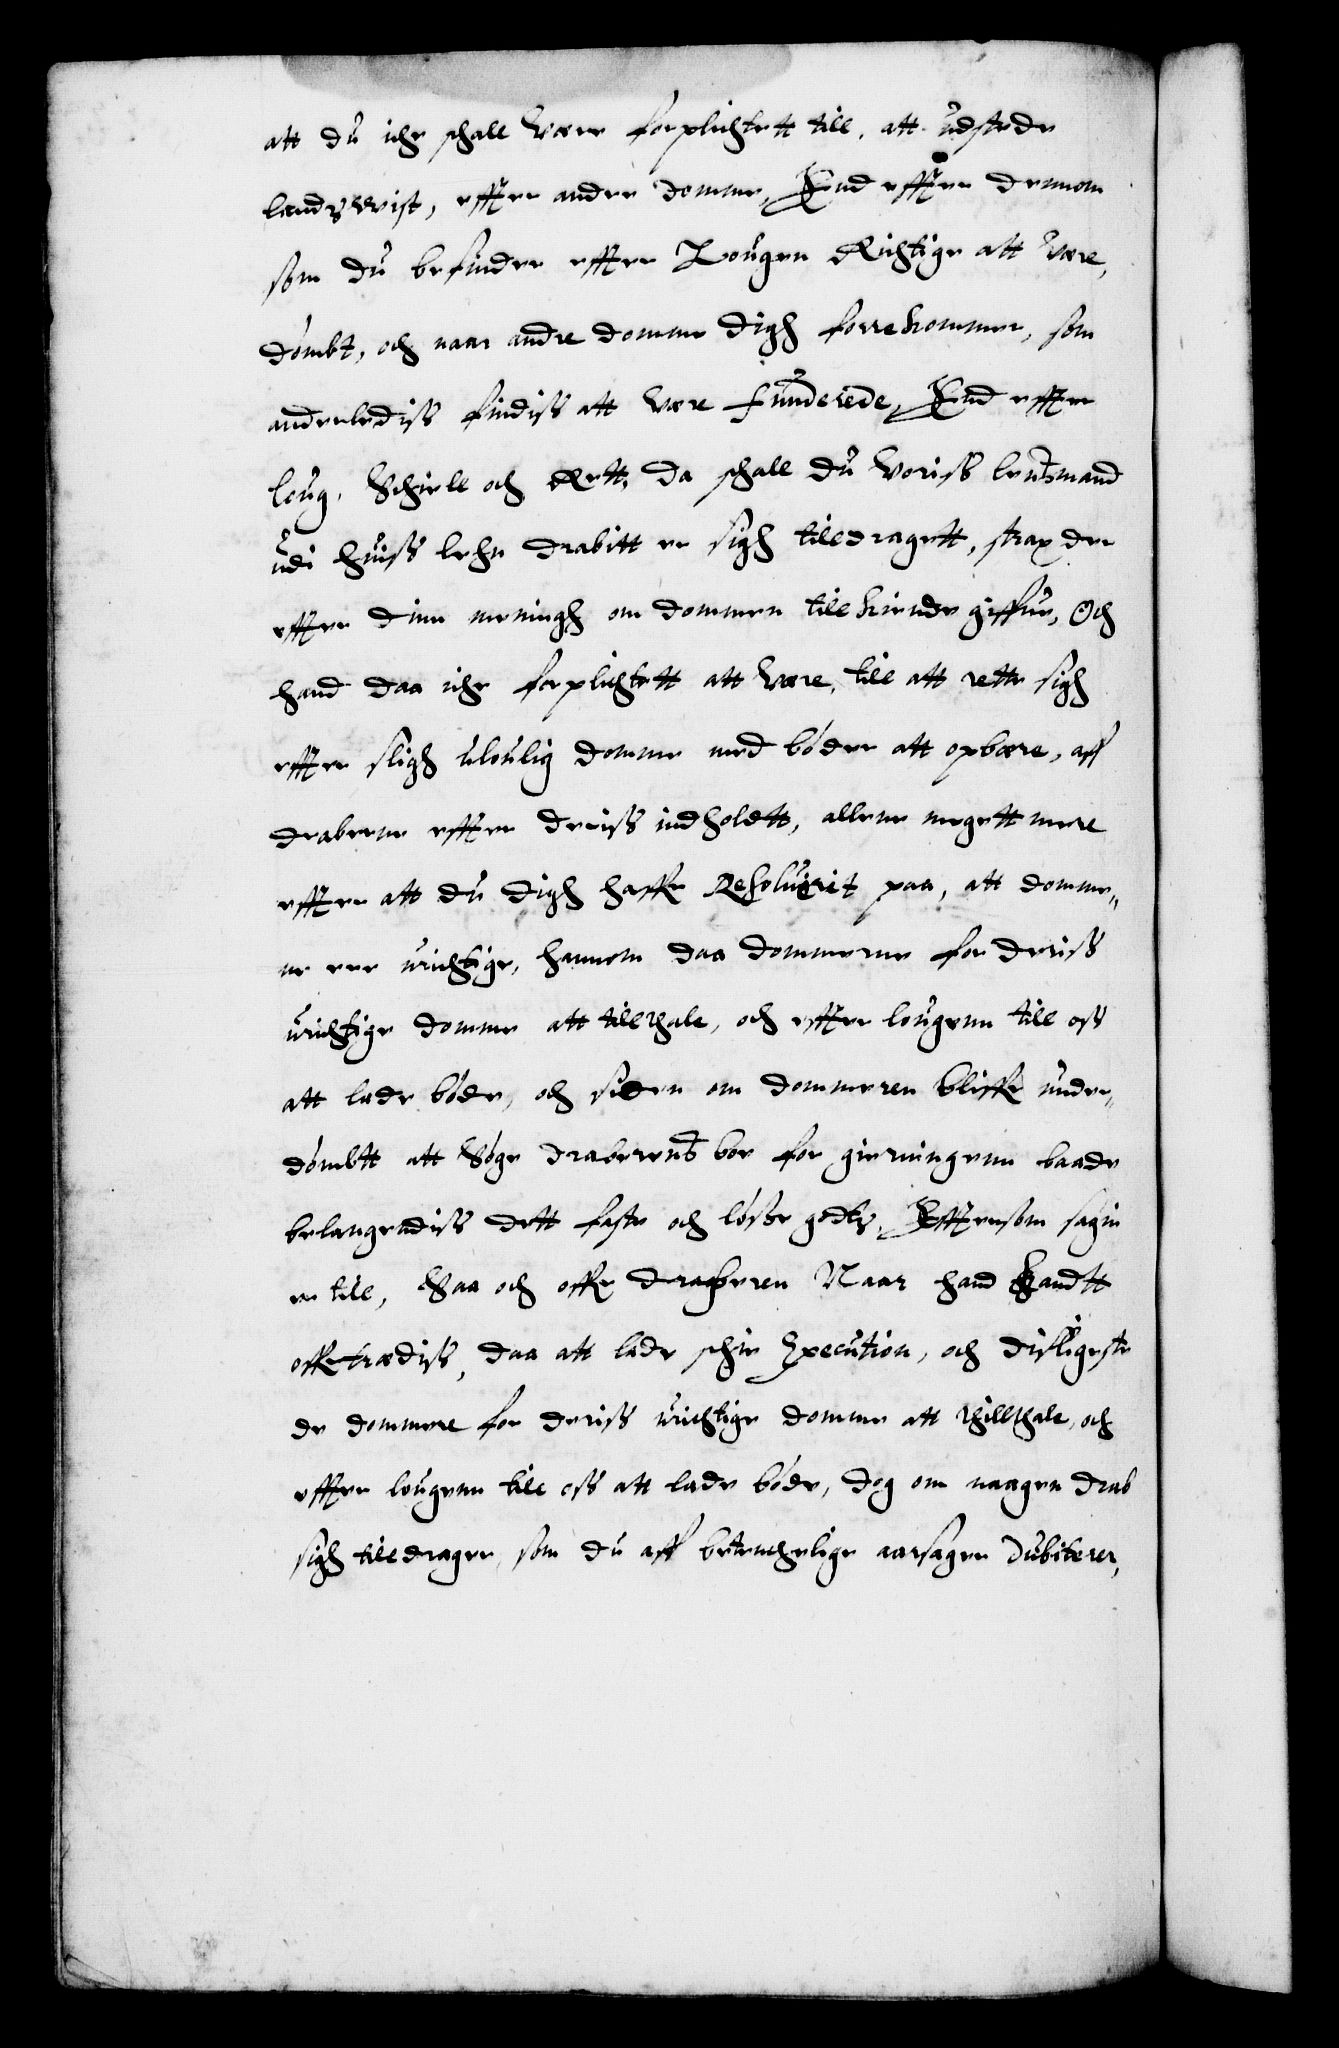 att du iche schall være forplichtett till, att udstede
landsvist, effter andre domme, End effter dennom
som du befinder effter Lougen Richtige att være,
dömbt, och naar andre domme digh forrekommer, som
anderlediss findiss att være funderede, End effter
loug, Schiell och Rett, da schall du voriss lensmand
udi huiss lehn drabitt er sigh tilldragett, strax der
effter dinn meningh om dommen tillkiende giffue, Och
hand daa iche forplichtett att være, till att rette sigh
effter sligh uloulig domme med böder att opbære, aff
draberne effter deriss indholdt, allene megett mere
effter att du digh haffr Resoluerit paa, att domme„
ne ere urichtige, hannom daa dommerne for deriss
urichtige domme att tillthale, och effter lougenn till oss
att lade böde, och siden om dommeren bliffr under„
dömbtt att Söge draberens boe for gierningenn baade
belangendiss dett faste och lösse godts, Efftersom sagen
er till, Saa och offr draberen Naar hand kandtt
offrtrædiss, daa att lade schie Execution, och disligeste
de dommere for deriss urichtige domme att thillthale, och
effter lougenn till oss att lade böde, dog om naagen drab
sigh tilldrager, som du aff betenchelige aarsager Dubiterer,